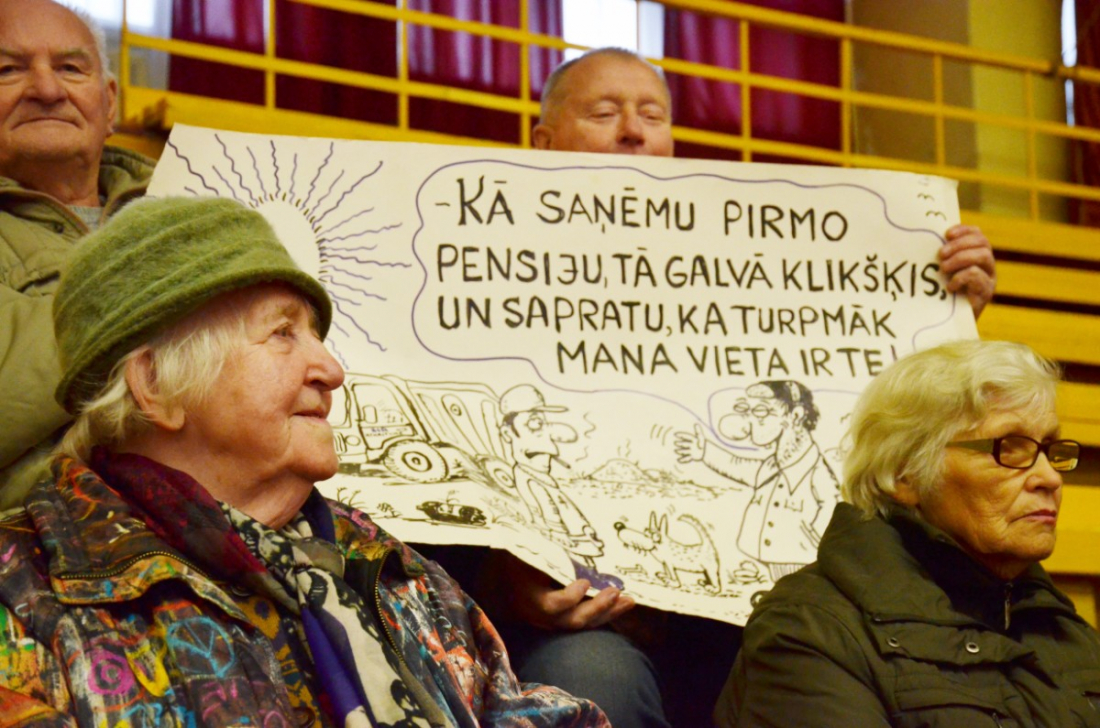 -KĀ SAŅĒMU PIRMO
PENSIJU, TĀ GALVĀ KLIKŠĶIS,
UN SAPRATU, KA TURPMĀK
MANA VIETA IR TE!